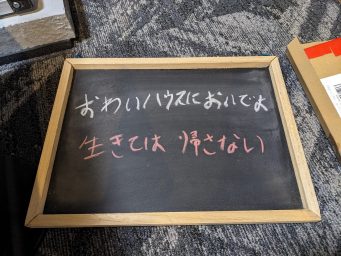 おわいハウスにおいでよ
生きては 帰さない